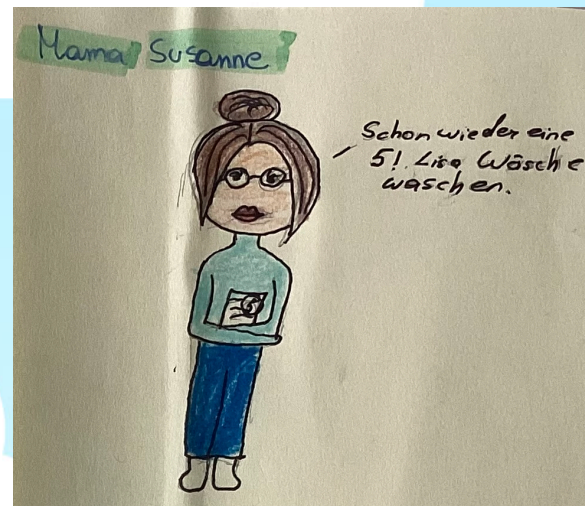 Mama Susanne
Schon wieder eine
5! Lisa Wäsche
waschen.